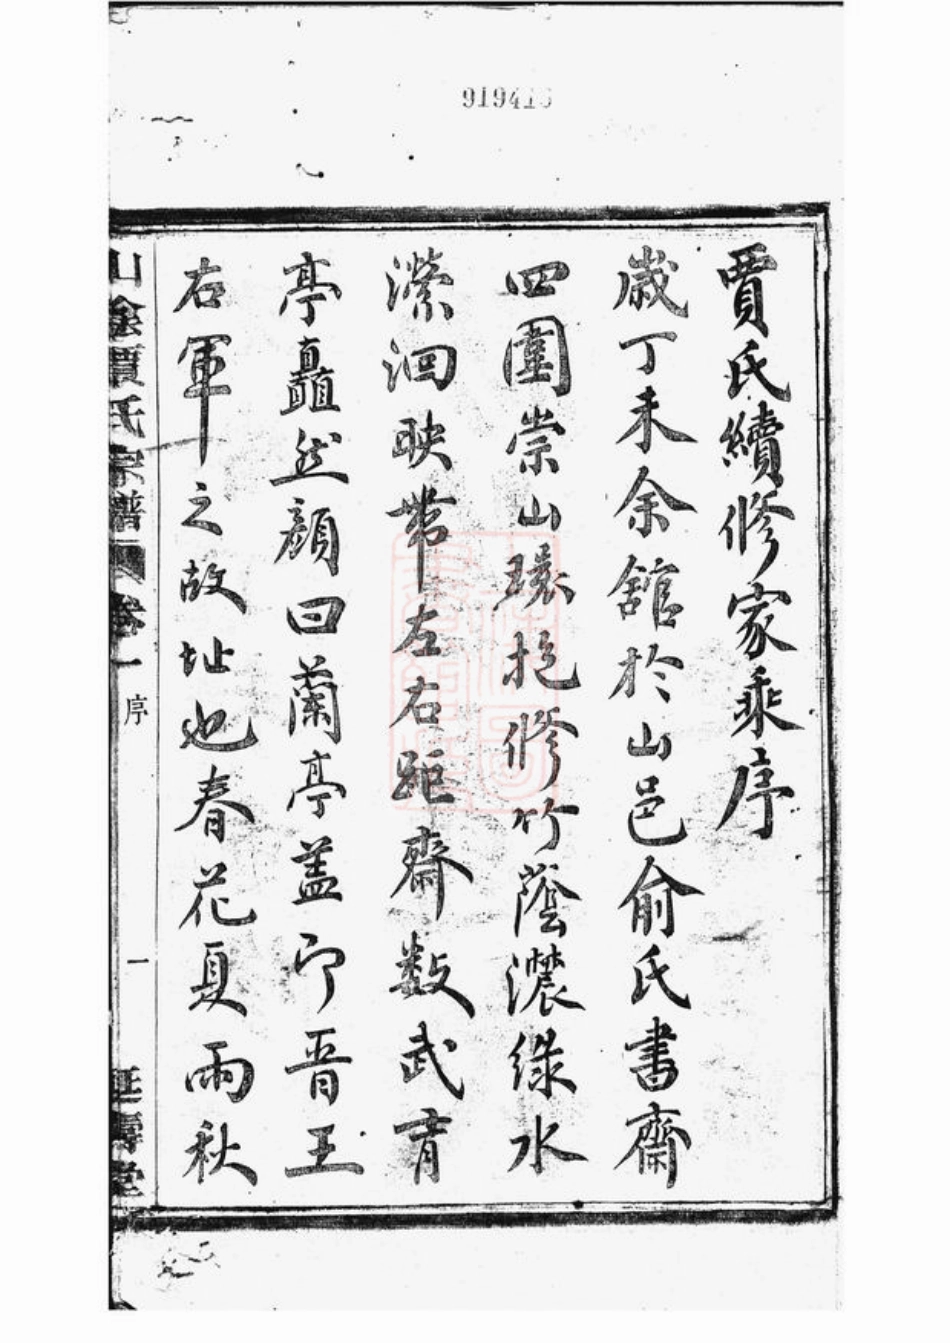 919416
賈氏續修家乘序
歲丁未余舘於山邑俞氏書齋
四圍崇山環抱修竹蔭濃綠水
濴洄映帶左右距齋數武有
亭矗然顔曰蘭亭蓋即晉王
右軍之故址也春花夏雨秋
山陰賈氏宗譜 卷一 序 一 延壽堂